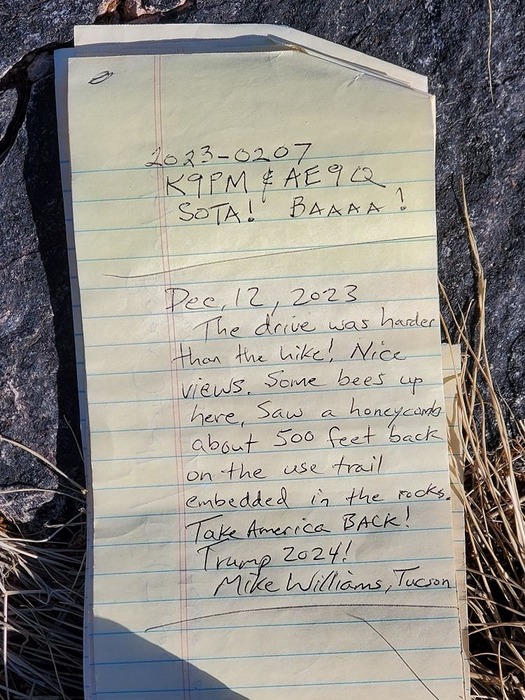 2023-0207
K9PM & AE9Q
SOTA! BAAAA!
Dec, 12, 2023
The drive was harder
than the hike! Nice
views. Some bees up
here. Saw a honeycomb
about 500 feet back
on the use trail
embedded in the rocks.
Take America BACK!
Trump 2024!
Mike Williams, Tucson